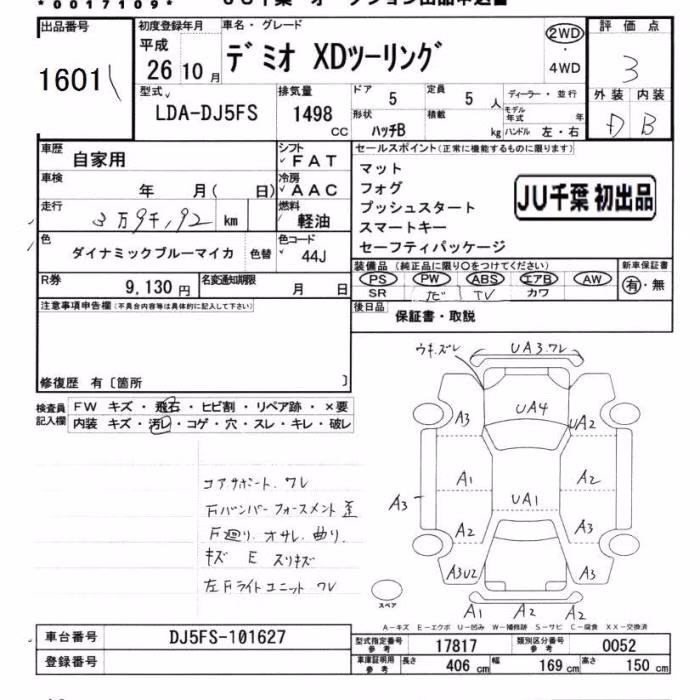 *0017109*
出品番号 初度登録年月 車名・グレード 評価点
1601 平成 26年10月 デミオ XDツーリング 2WD ・ 4WD 3
型式 LDA-DJ5FS 排気量 1498 CC ドア 5 定員 5 人 ディーラー・並行 外装 内装
形状 ハッチB 積載 kg モデル年式 年 ハンドル 左・右 D B
車歴 自家用 シフト FAT セールスポイント(正常に機能するものに限ります)
車検 年 月( 日) 冷房 AAC マット
走行 3万9千,92 km 燃料 軽油 フォグ
プッシュスタート
スマートキー
セーフティパッケージ
JU千葉 初出品
色 ダイナミックブルーマイカ 色替 色コード 44J
装備品(純正品に限り○をつけてください) 新車保証書
R券 9,130円 名変通知期限 月 日 PS PW ABS エアB AW 有・無
SR ナビ TV カワ
注意事項申告欄(不具合内容等は具体的に記入して下さい) 後日品 保証書・取説
修復歴 有〔箇所 〕
検査員記入欄 FW キズ・飛石・ヒビ割・リペア跡・×要
内装 キズ・汚レ・コゲ・穴・スレ・キレ・破レ
コアサポート.ワレ
Fバンパーフォースメント 歪
F廻り.オサレ.曲り.
キズ E スリキズ
左Fライトユニット ワレ
ウキ.ズレ UA3.ワレ
A3 UA4 UA2
A1 UA1 A2
A3 A2 A3
A3U2 A3
スペア A1 A2 A2
A-キズ E-エクボ U-凹み W-補修跡 S-サビ C-腐食 XX-交換済
車台番号 DJ5FS-101627 型式指定番号 参考 17817 類別区分番号 参考 0052
登録番号 車庫証明用 参考 長さ 406 cm 幅 169 cm 高さ 150 cm